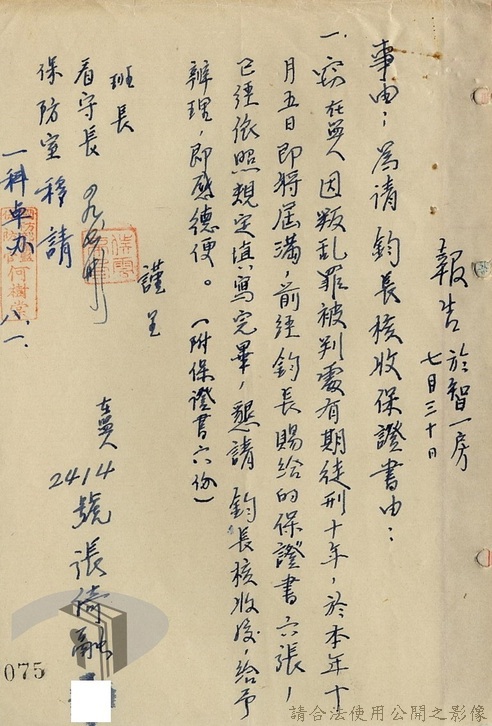 報告 於智一房
七月三十日
事由：為請 鈞長核收保證書由：
一、竊在監人因叛乱罪被判處有期徒刑十年，於本年十
月五日即將屆滿，前經鈞長賜給的保證書六張，
已經依照規定填寫完畢，懇請 鈞長核收後，給予
辦理，即感德便。（附保證書六份）
謹呈
班長
看守長
保防室 移請
一科卓办
何樹棠
八、一、
在監人
2414號 張倚融
075
請合法使用公開之影像